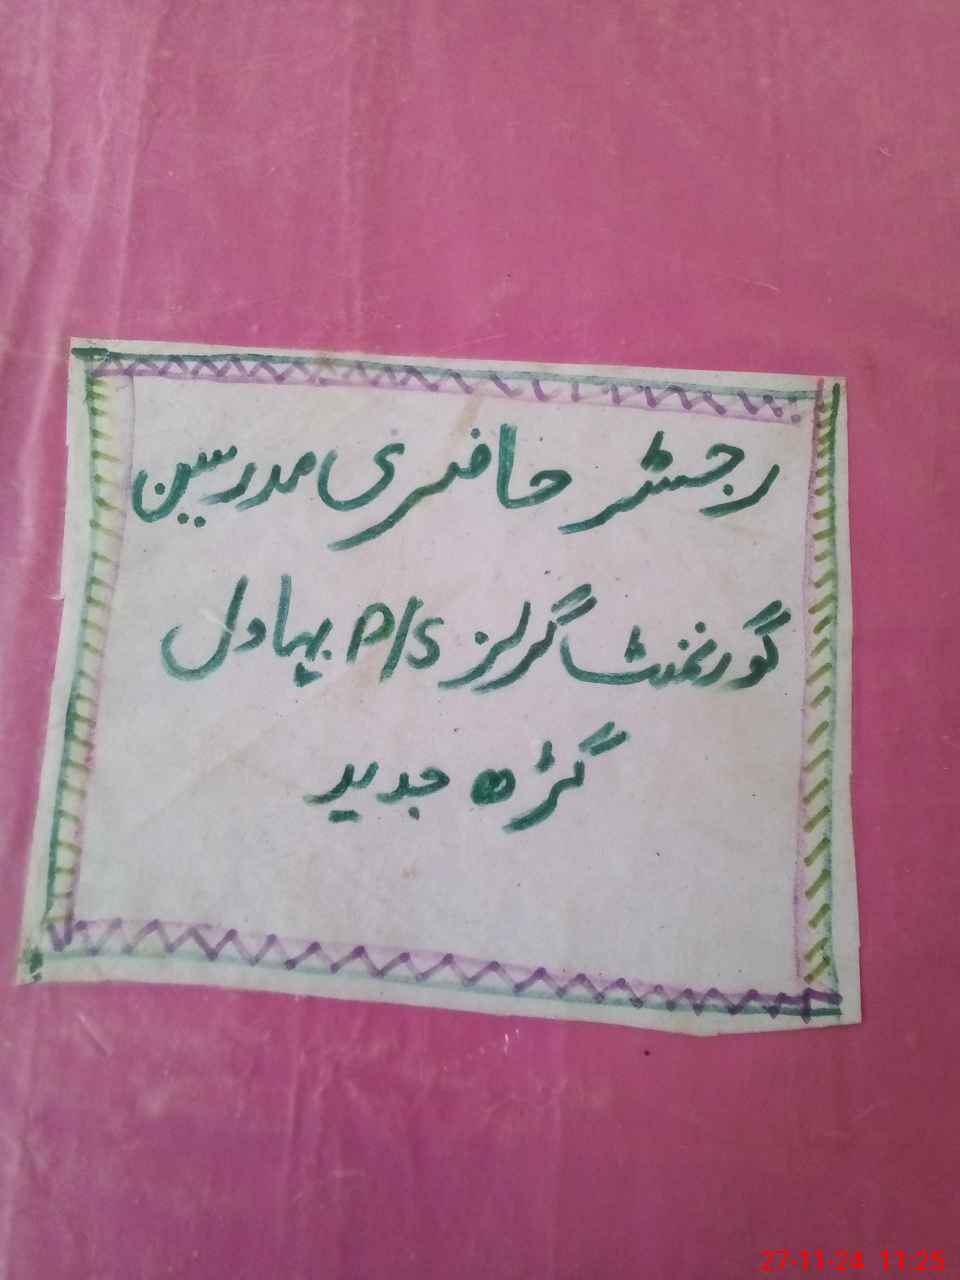 رجسٹر حاضری مدرسین
گورنمنٹ گرلز P/S بہاول
گڑھ جدید
27-11-24 11:25